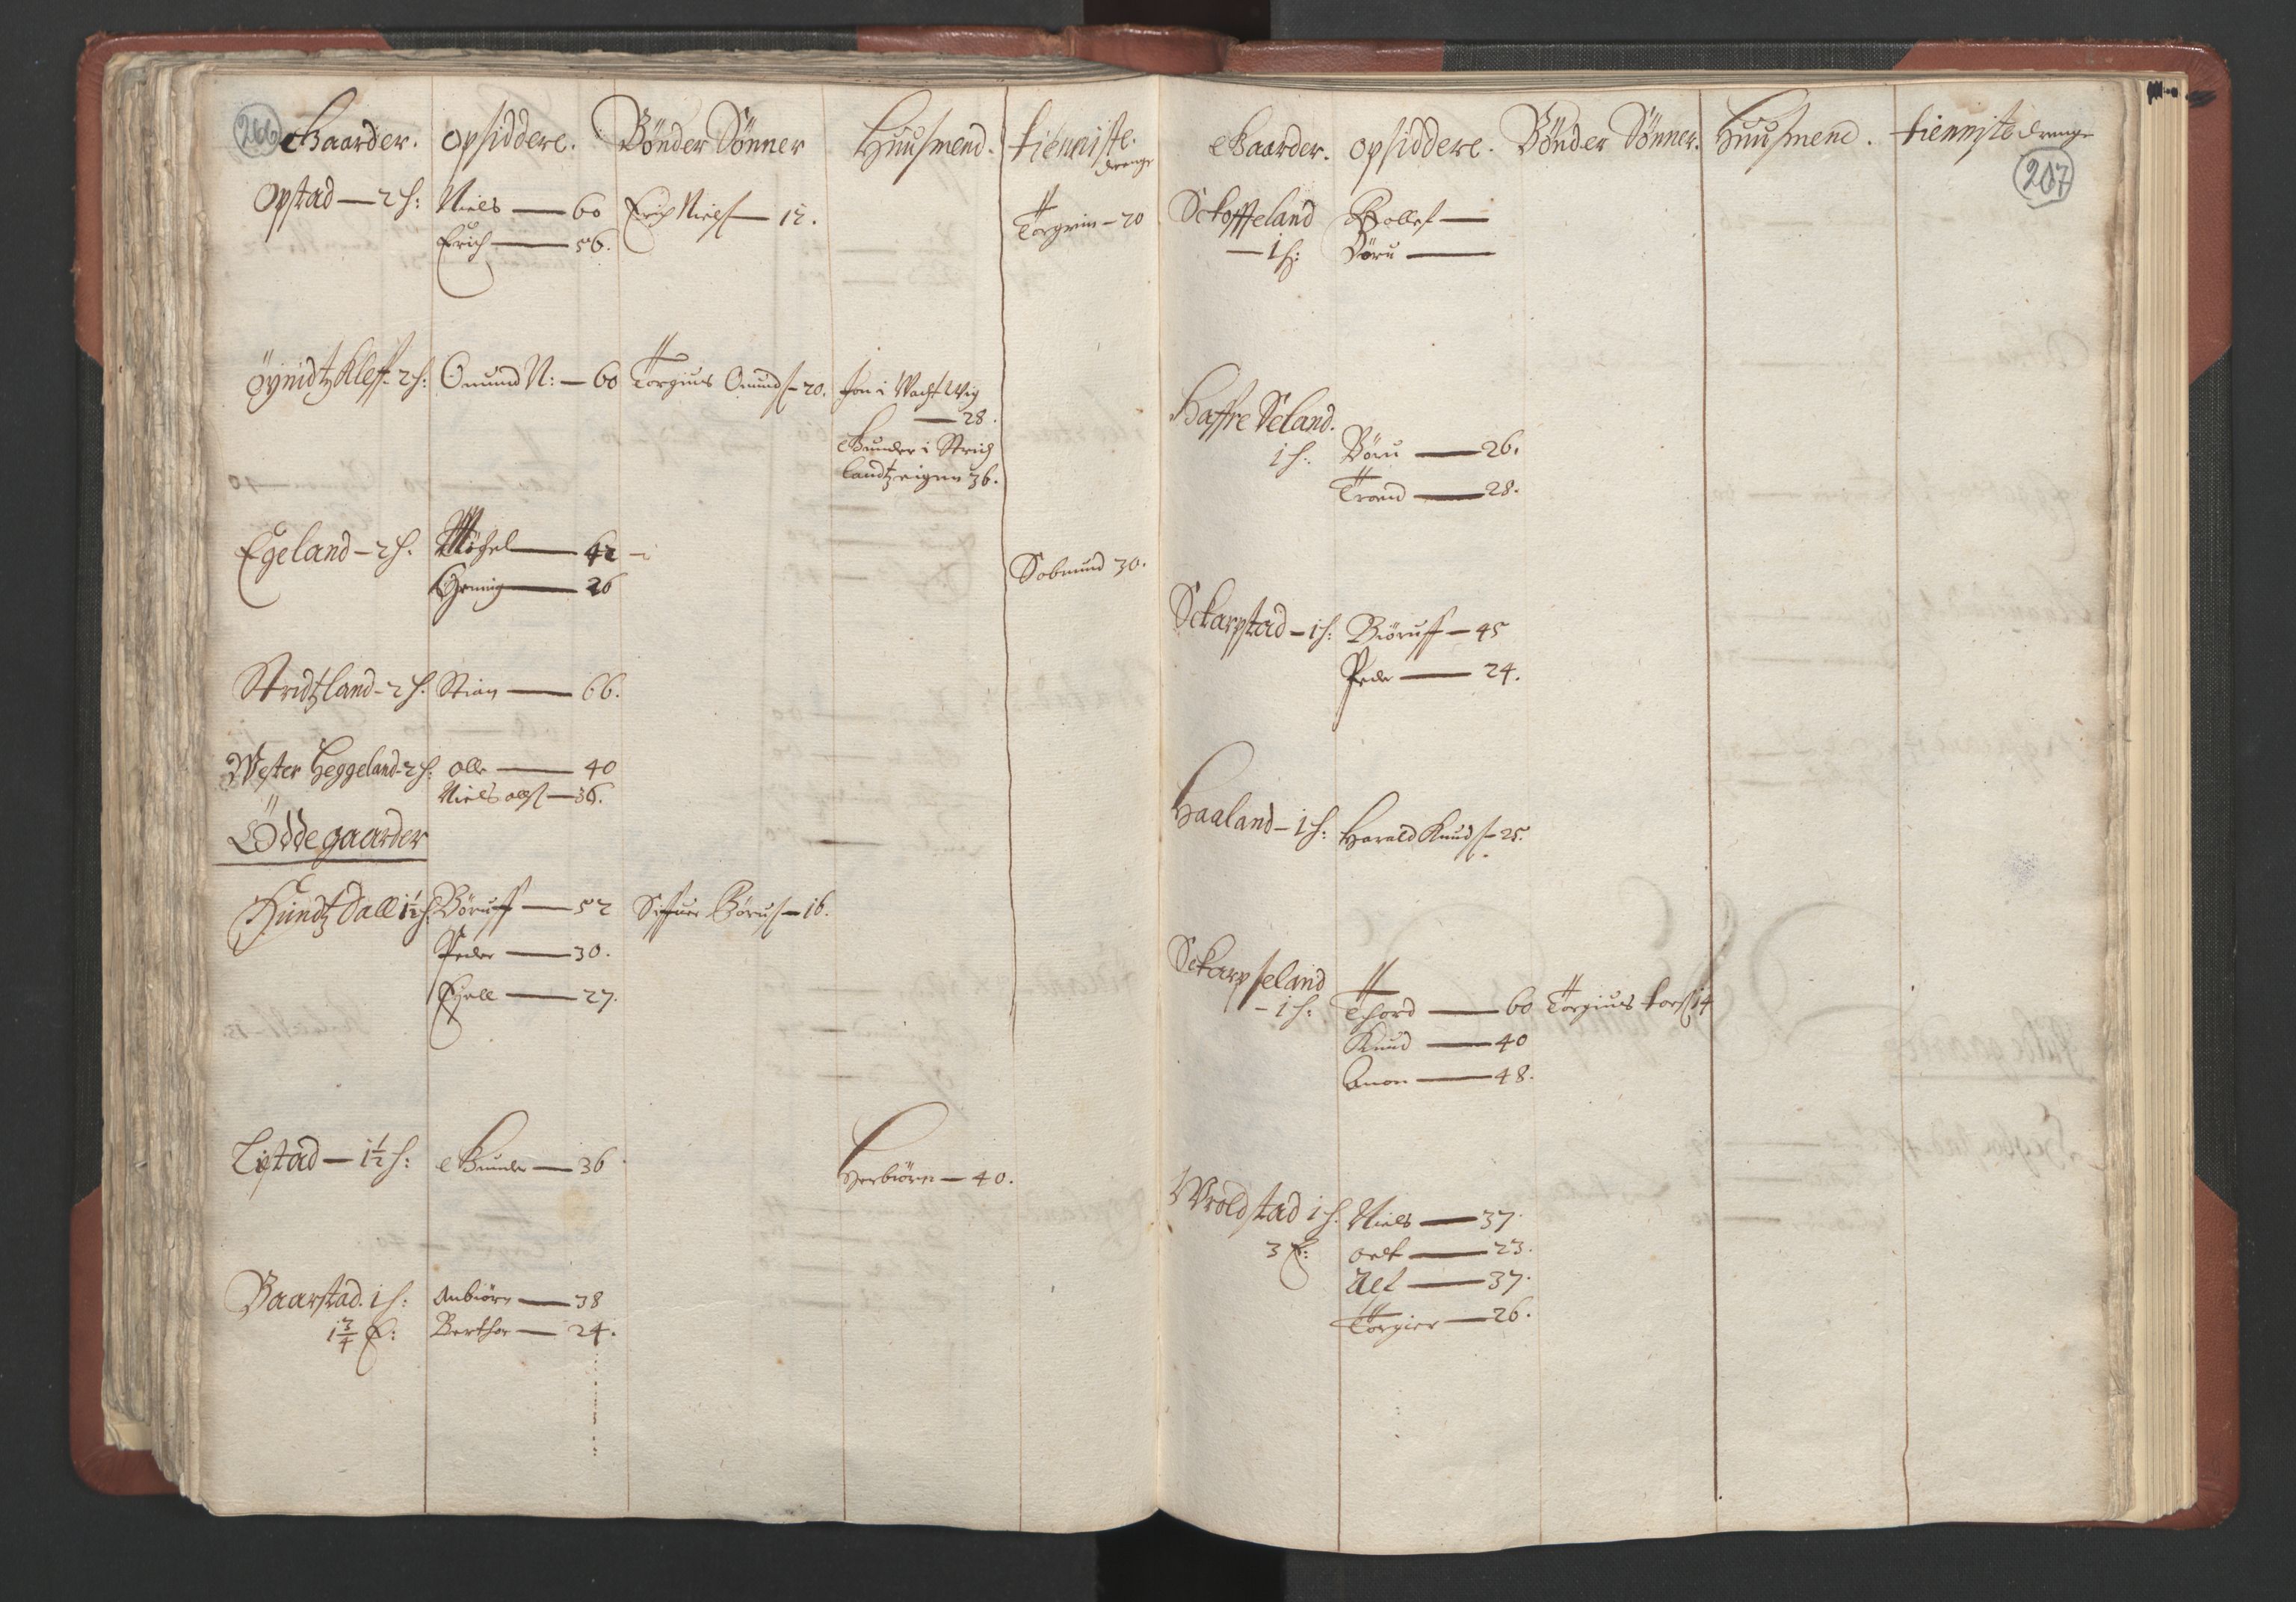 206 Gaarder. opsiddere. Bönder Sönner Huusmend. tienniste.
drenge
Opstad — 2 h: Niels — 60 Erich Niels — 12. Torgrim — 20
Erich — 56.
Öÿnidtz Kleff - 2 h: Omund N: — 60 Torgiuls Omunds — 20. Jon i Wachtwig
— 28.
Gunder i Strid
landtz eigen 36.
Egeland — 2 h. Michel — 42
Henning — 26 Sobmund 30.
Stridtzland - 2 h. Stian — 66.
Wester Heggeland - 2 h: olle — 40
Niels olles — 36.
Ödde gaarder
Hundtz dall 1½ h. Böruff — 52 Siffuer Börus — 16.
Peder — 30.
Kield — 27.
Listad — 1½ h: Gunder — 36 Herbiörn — 40.
Baarstad. 1 h: Anbiörn — 38
1¾ E: Berthor — 24.
207
Gaarder. opsiddere. Bönder Sönner. Huusmend. tienniste drenge
Skoffteland Rollef —
— 1 h: Böru —
Haffre Seland.
1 h: Böru — 26.
Trond — 28.
Skarpstad — 1 h: Biöruff — 45
Peder — 24.
Haaland — 1 h: Harald Knuds — 25.
Skarpseland
- 1 h: Thord — 60 Torgiuls tors 14
Knud — 40
Anon — 48.
Wroldstad 1 h. Niels — 37.
3 E: — 23.
Alf — 37.
Torgier — 26.